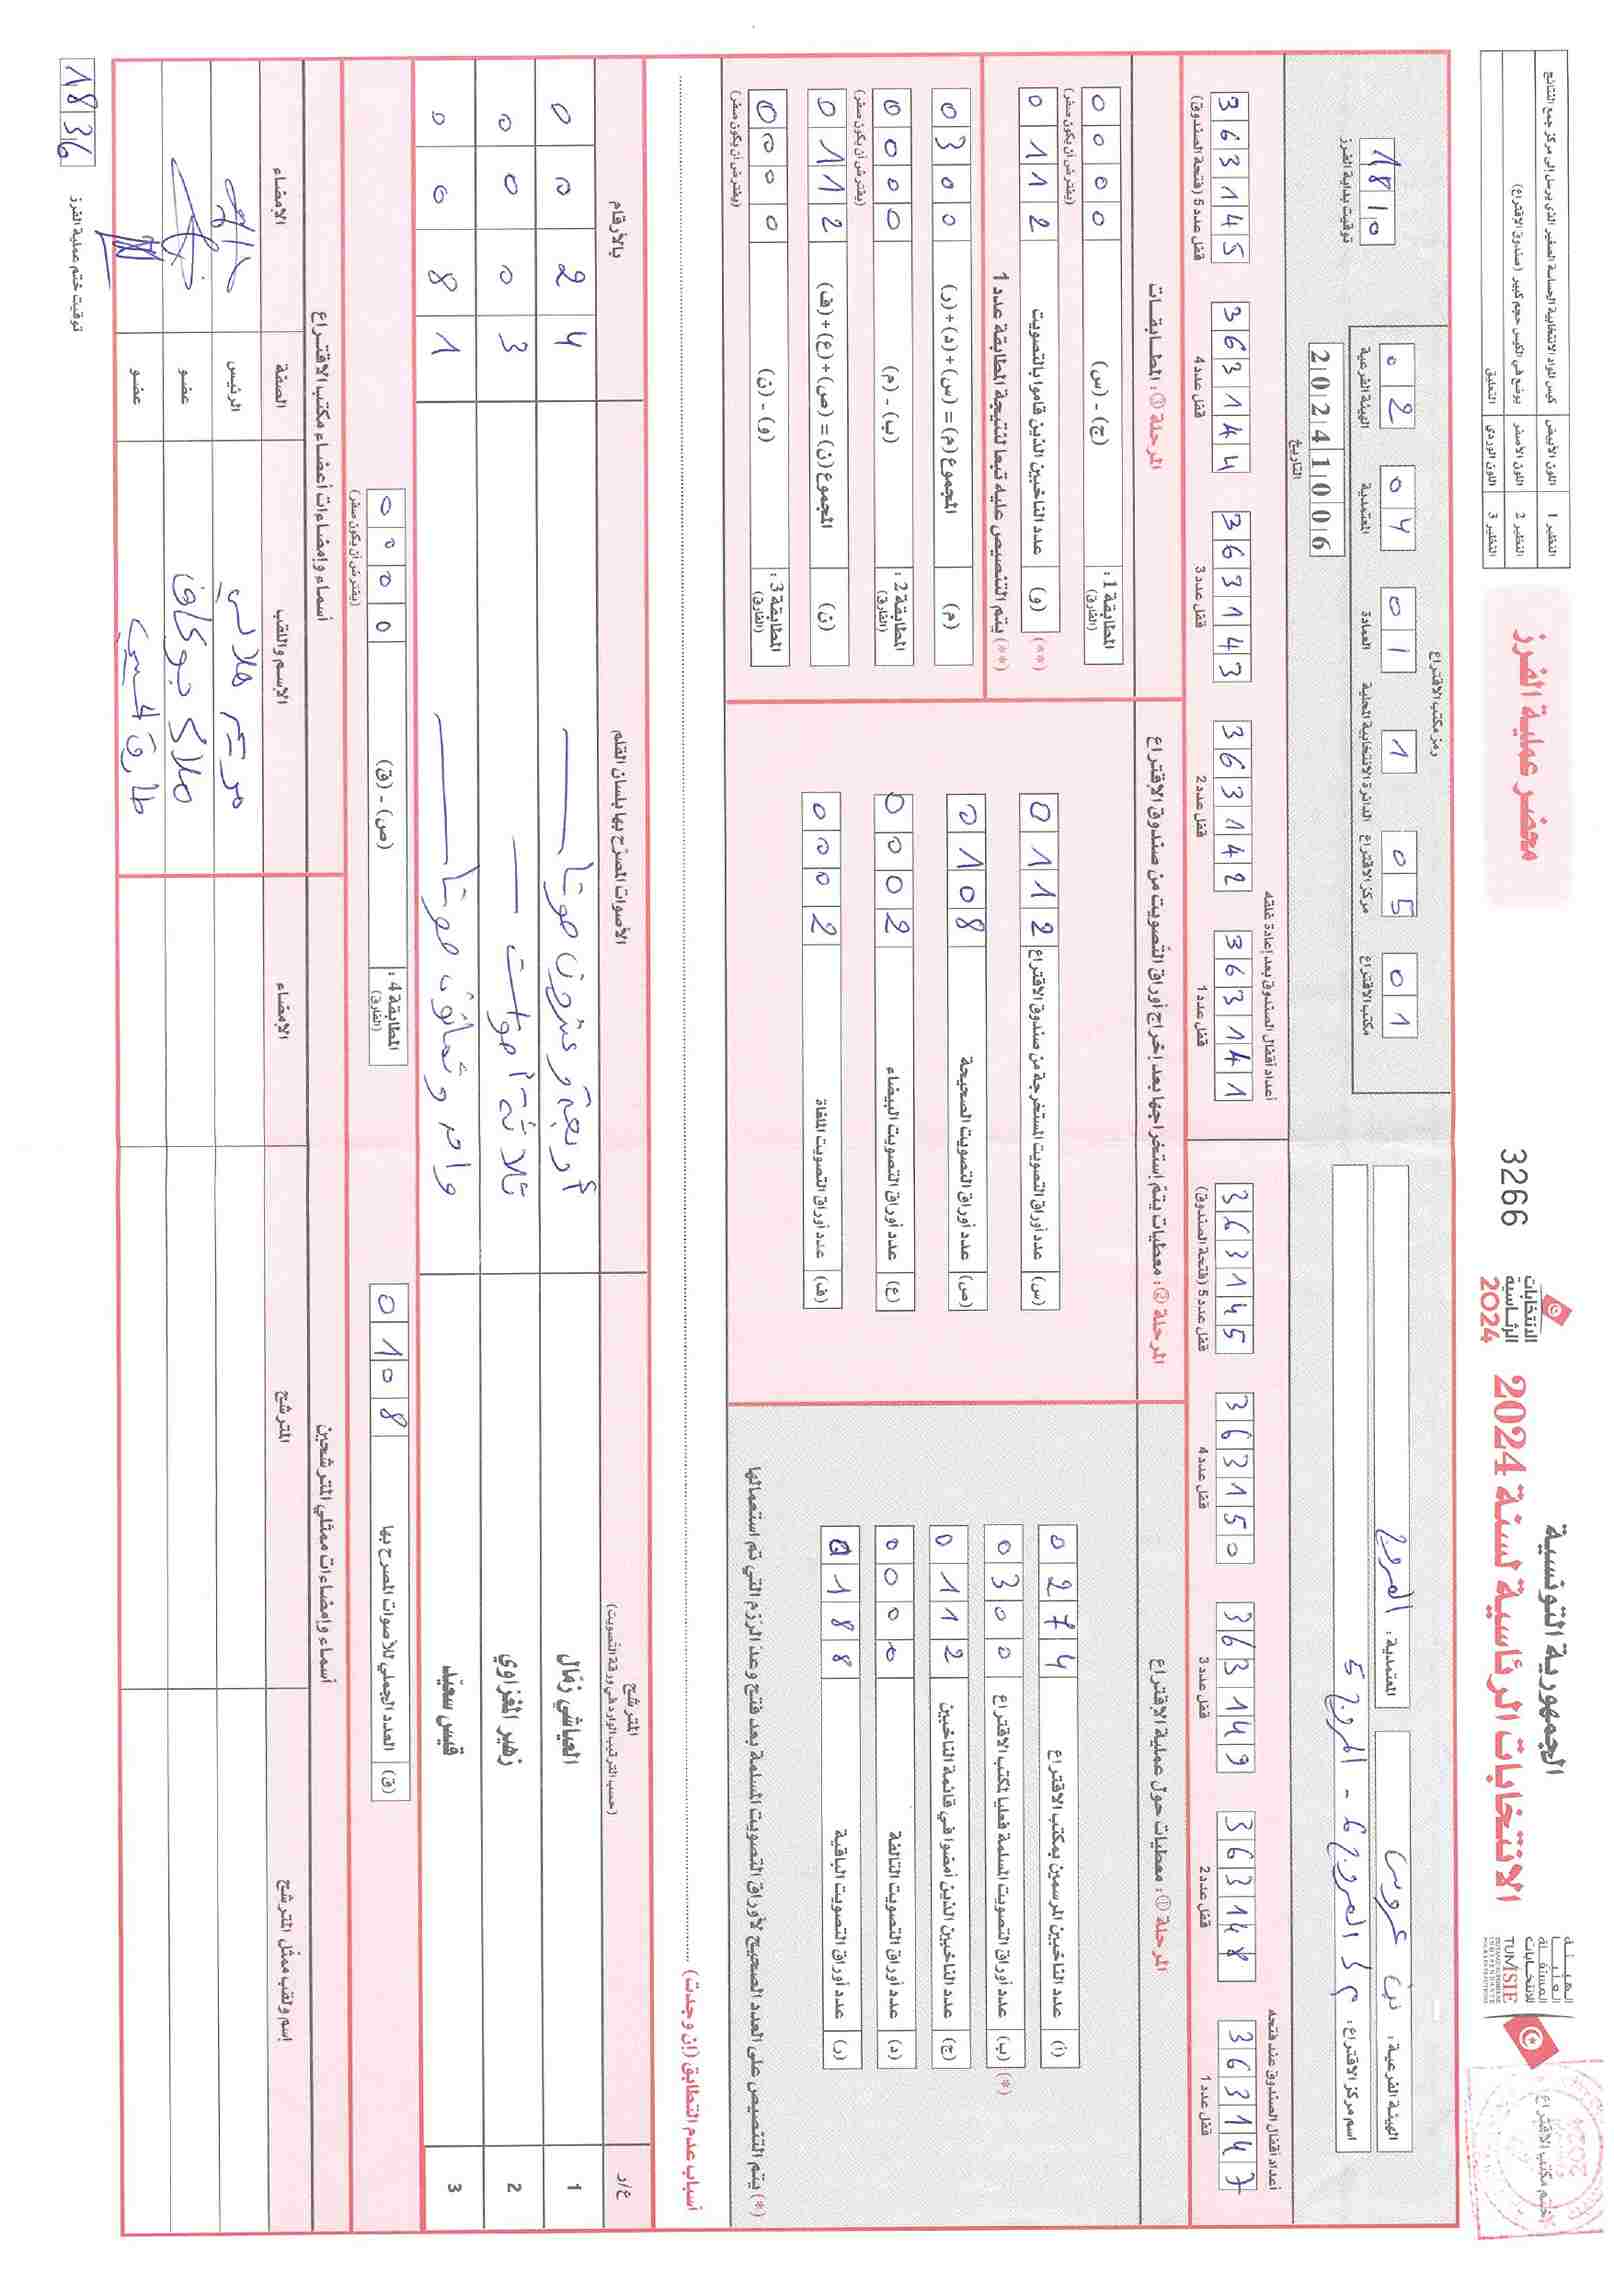 الجمهورية التونسية
الانتخابات الرئاسية لسنة 2024
الانتخابات
الرئاسية
2024
3266
محضر عملية الفرز
الهيئة
العليا
المستقلة
للانتخابات
TUNISIE
ختم مكتب الاقتراع
النظير 1 اللون الأبيض كيس المواد الانتخابية الحساسة الصغير الذي يرسل إلى مركز جمع النتائج
النظير 2 اللون الأصفر يوضع في الكيس حجم كبير (صندوق الاقتراع)
النظير 3 اللون الوردي التعليق
الهيئة الفرعية: بن عروس
المعتمدية: المروج
اسم مركز الاقتراع: المروج 6 - المروج 5
رمز مكتب الاقتراع
01 05 1 01 04 02
مكتب الاقتراع مركز الاقتراع الدائرة الانتخابية المحلية العمادة المعتمدية الهيئة الفرعية
18 10
توقيت بداية الفرز
20241006
التاريخ
أعداد أقفال الصندوق عند فتحه
363147 363148 363149 363150 363145
قفل عدد 1 قفل عدد 2 قفل عدد 3 قفل عدد 4 قفل عدد 5 (فتحة الصندوق)
أعداد أقفال الصندوق بعد إعادة غلقه
363141 363142 363143 363144 363145
قفل عدد 1 قفل عدد 2 قفل عدد 3 قفل عدد 4 قفل عدد 5 (فتحة الصندوق)
المرحلة ①: معطيات حول عملية الاقتراع
(أ) عدد الناخبين المرسمين بمكتب الاقتراع 0274
(*) (ب) عدد أوراق التصويت المسلمة فعليا لمكتب الاقتراع 0300
(ج) عدد الناخبين الذين أمضوا في قائمة الناخبين 0112
(د) عدد أوراق التصويت التالفة 0000
(ر) عدد أوراق التصويت الباقية 0188
(*) يتم التنصيص على العدد الصحيح لأوراق التصويت المسلمة بعد فتح وعد الرزم التي تم استعمالها
المرحلة ②: معطيات يتم إستخراجها بعد إخراج أوراق التصويت من صندوق الإقتراع
(س) عدد أوراق التصويت المستخرجة من صندوق الاقتراع 0112
(ص) عدد أوراق التصويت الصحيحة 0108
(ع) عدد أوراق التصويت البيضاء 0002
(ف) عدد أوراق التصويت الملغاة 0002
المرحلة ③: المطابقات
المطابقة 1: (الفارق) (ج) - (س) 0000
(يفترض أن يكون صفر)
(**) (و) عدد الناخبين الذين قاموا بالتصويت 0112
(**) يتم التنصيص عليه تبعا لنتيجة المطابقة عدد 1
(م) المجموع (م) = (س)+(د)+(ر) 0300
المطابقة 2: (الفارق) (ب) - (م) 0000
(يفترض أن يكون صفر)
(ن) المجموع (ن) = (ص)+(ع)+(ف) 0112
المطابقة 3: (الفارق) (و) - (ن) 0000
(يفترض أن يكون صفر)
أسباب عدم التطابق (إن وجدت)
ع/ر المترشح الأصوات المصرّح بها بلسان القلم بالأرقام
(حسب الترتيب الوارد في ورقة التصويت)
1 العياشي زمّال أربعة وعشرون صوتا 0024
2 زهير المغزاوي ثلاثة أصوات 0003
3 قيس سعيّد واحد وثمانون صوتا 0081
(ق) العدد الجملي للأصوات المصرح بها 0108
المطابقة 4: (الفارق) (ص) - (ق) 0000
(يفترض أن يكون صفر)
أسماء وإمضاءات ممثلي المترشحين
إسم ولقب ممثّل المترشح المترشح الإمضاء
أسماء وإمضاءات أعضاء مكتب الاقتراع
الإسم واللقب الصفة الإمضاء
الرئيس
عضو
طارق عضو
توقيت ختم عملية الفرز
18 36